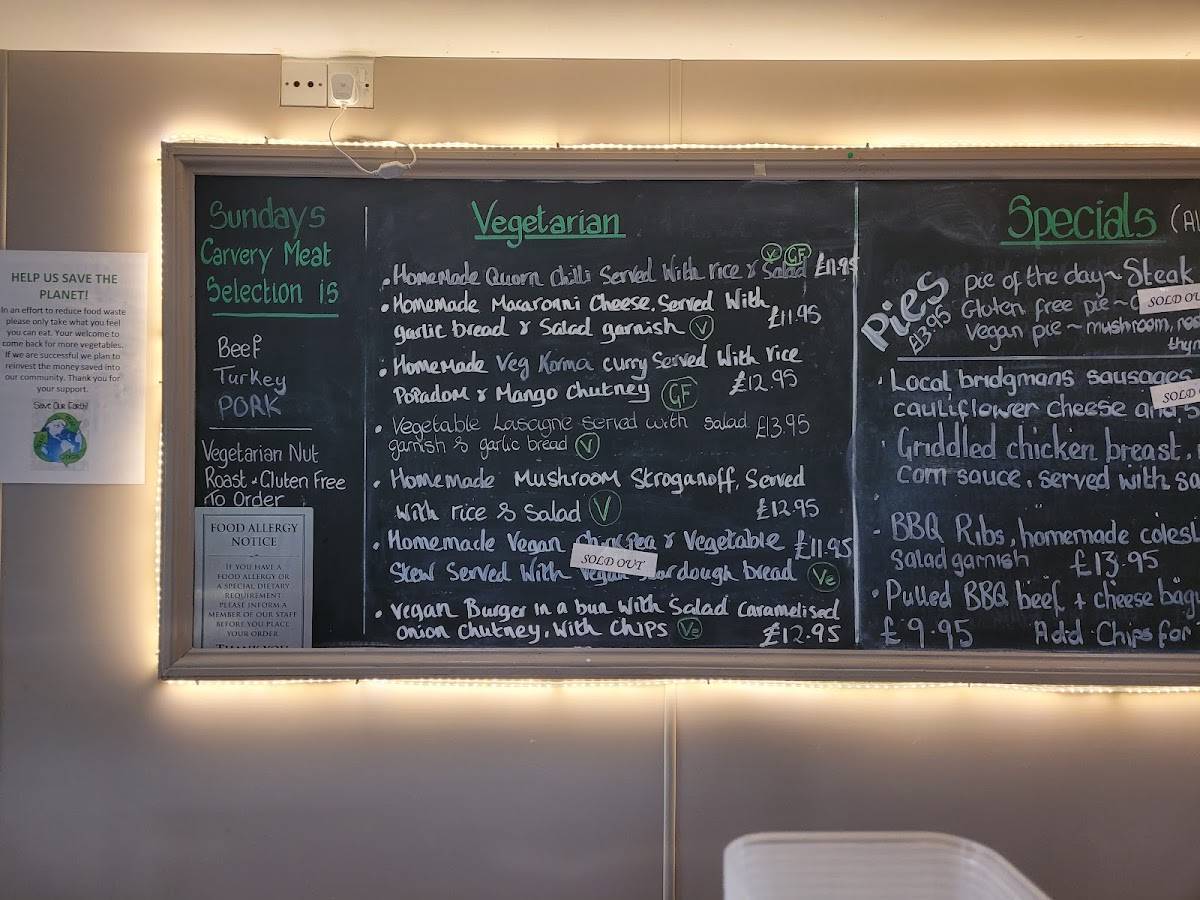 HELP US SAVE THE
PLANET!
In an effort to reduce food waste
please only take what you feel
you can eat. Your welcome to
come back for more vegetables.
If we are successful we plan to
reinvest the money saved into
our community. Thank you for
your support.
Save Our Earth!
Sundays
Carvery Meat
Selection is
Beef
Turkey
PORK
Vegetarian Nut
Roast · Gluten Free
To Order
FOOD ALLERGY
NOTICE
IF YOU HAVE A
FOOD ALLERGY OR
A SPECIAL DIETARY
REQUIREMENT
PLEASE INFORM A
MEMBER OF OUR STAFF
BEFORE YOU PLACE
YOUR ORDER
THANK YOU
Vegetarian
V GF
· Homemade Quorn Chilli Served With rice & Salad £11.95
· Homemade Macaronni Cheese. Served With
garlic bread & Salad garnish V £11.95
· Homemade Veg Korma curry Served With rice
Popadom & Mango Chutney GF £12.95
· Vegetable Lasagne served with salad £13.95
garnish & garlic bread V
· Homemade Mushroom Stroganoff, Served
With rice & Salad V £12.95
· Homemade Vegan Chickpea & Vegetable £11.95
SOLD OUT
Stew Served With Vegan Sourdough bread Ve
· Vegan Burger in a bun With Salad Caramelised
onion Chutney, With Chips Ve £12.95
Specials (AL
Pies
£13.95
pie of the day ~ Steak
Gluten free pie ~
SOLD OU
Vegan pie ~ mushroom,
thym
· Local bridgmans sausages
SOLD
cauliflower cheese and
· Griddled chicken breast,
corn sauce, served with sa
· BBQ Ribs, homemade colesl
salad garnish £13.95
· Pulled BBQ beef + cheese bagu
£9.95 Add Chips for